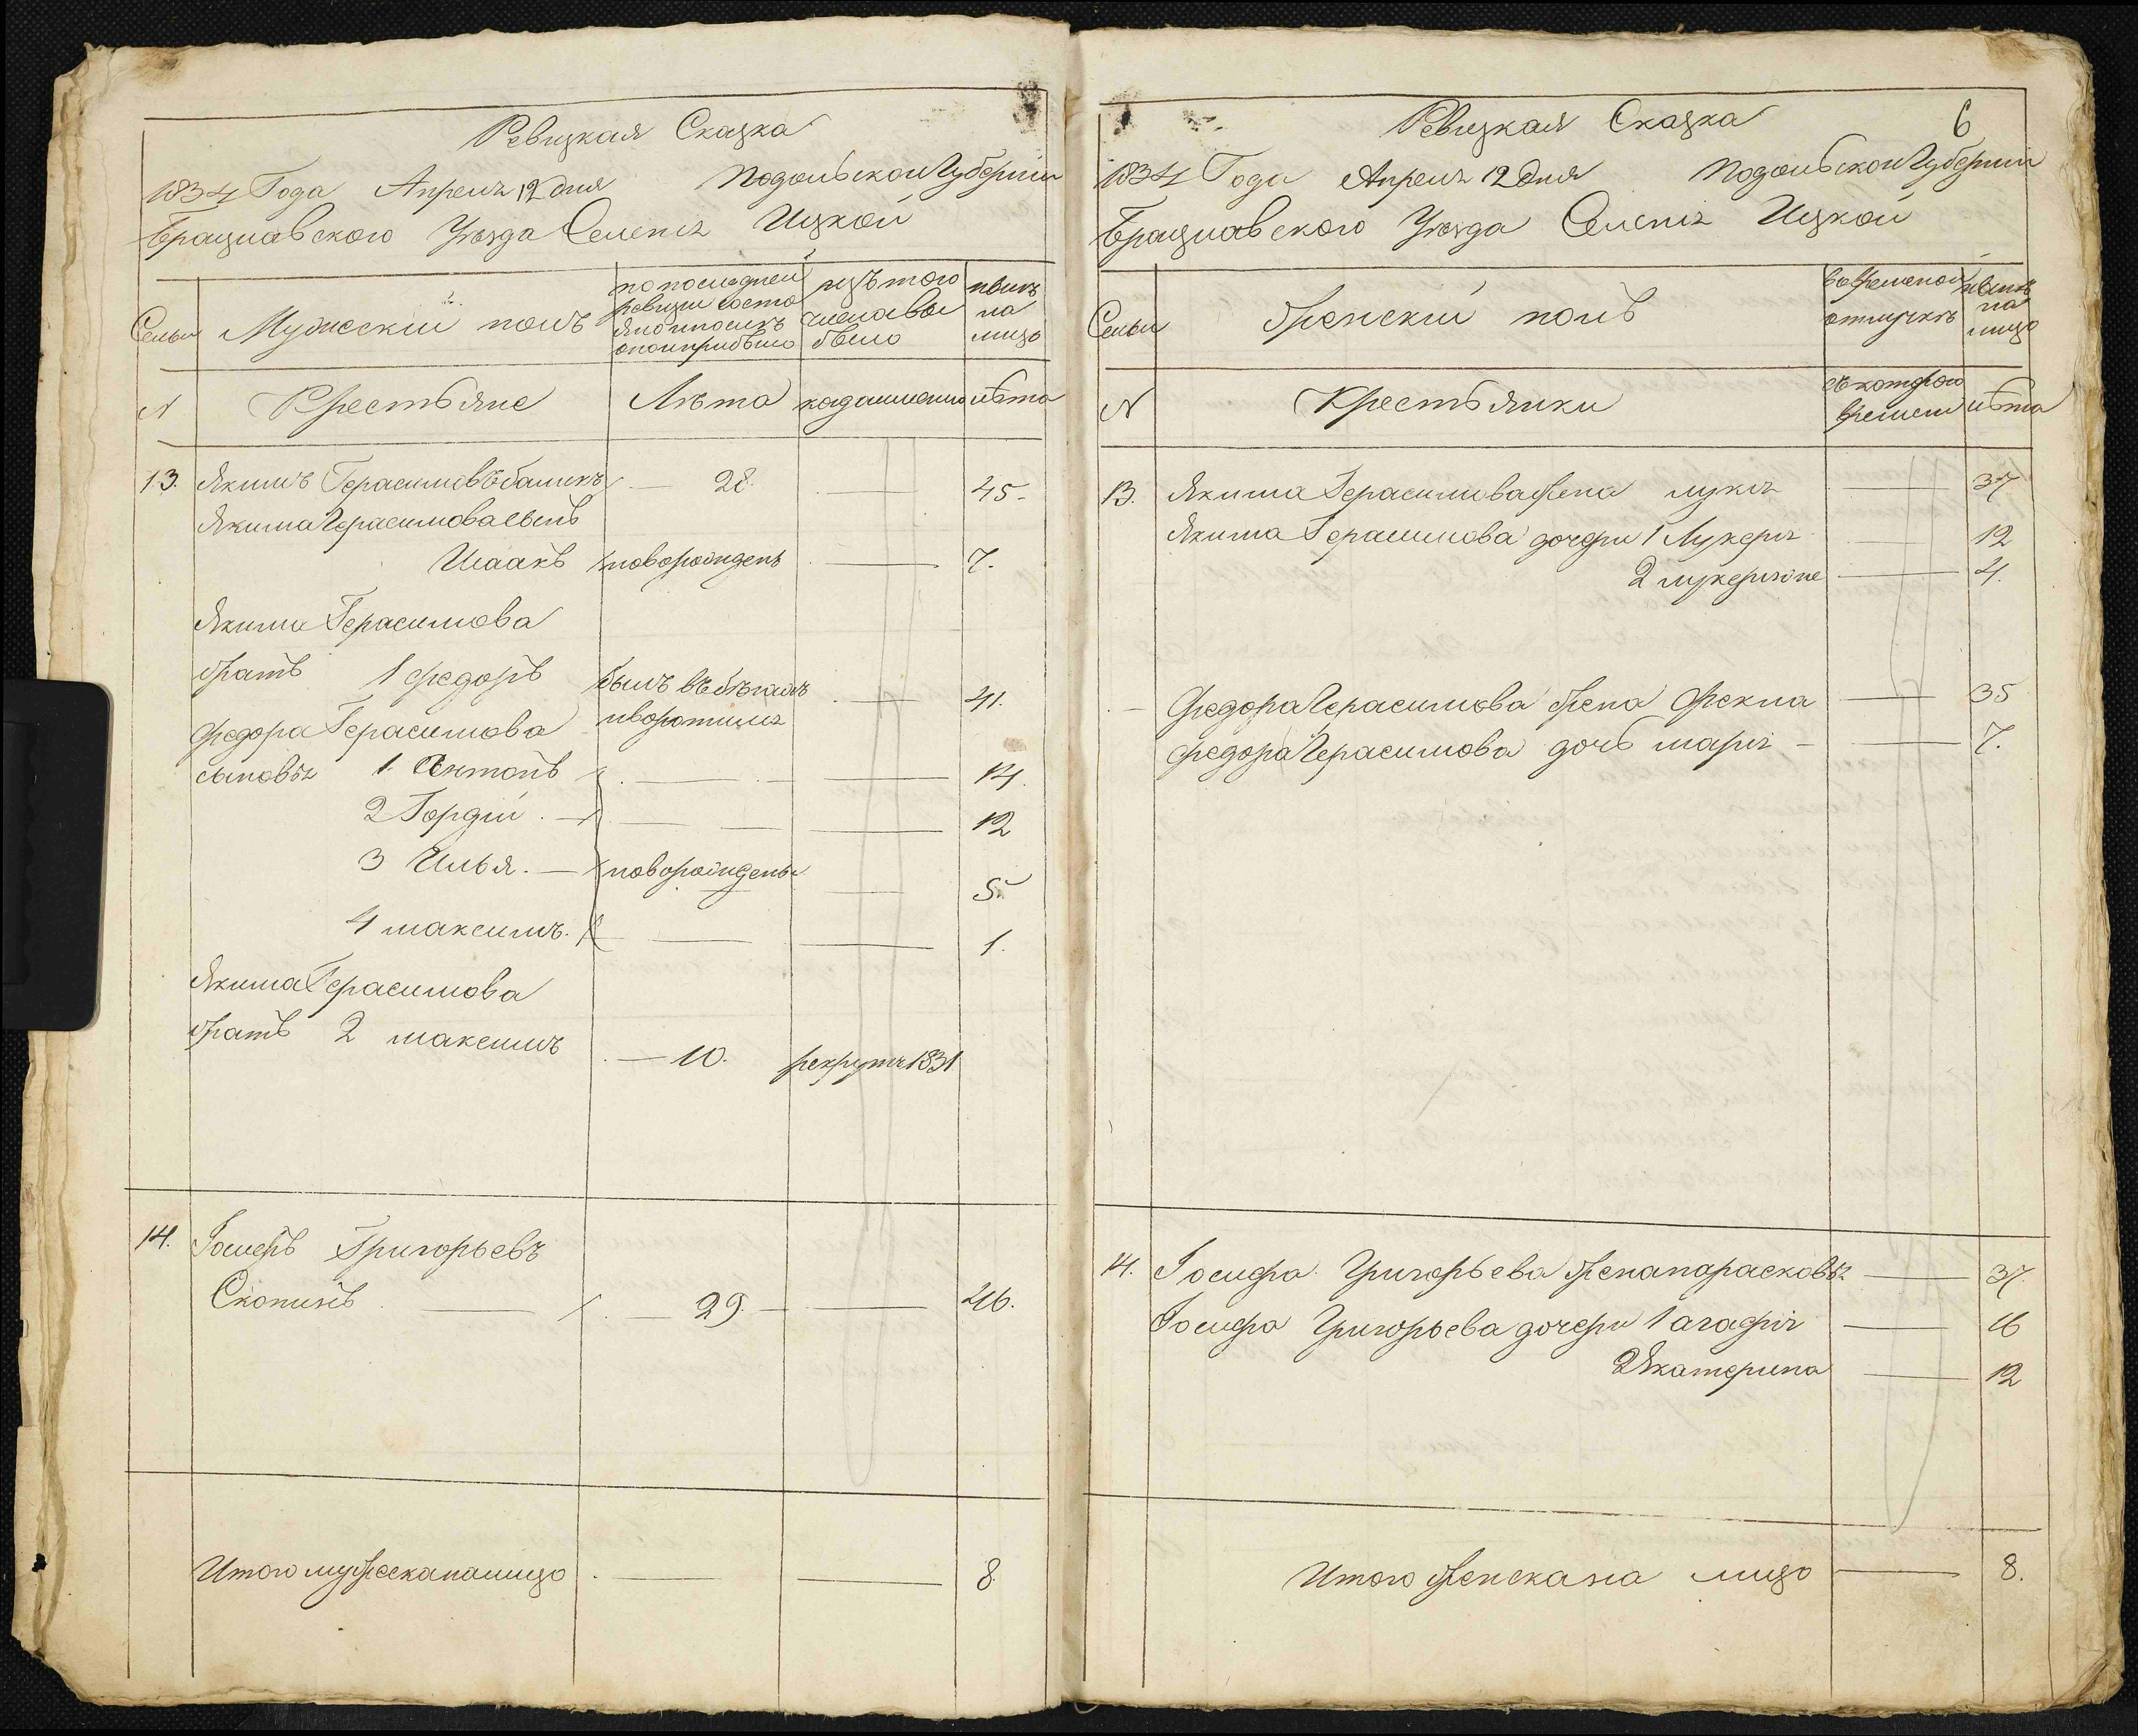 Ревизкая Сказка
1834 Года Апреля 12 дня Подольской Губерніи
Брацлавского Уезда Селенія Ицкой
Семьи
Мужиский полъ
по последней
ревизіи состо
яло и после
оной прибыло
изъ того
числа вы
было
ныне
на
лицо
N
Крестьяне
Лѣта
когда именно
лѣта
13. Якимъ Герасимовъ 28. 45.
Якима Герасимова сынъ
Исаакъ новорожденъ 7.
Якима Герасимова
братъ 1 Федоръ былъ въ бегахъ 41.
Федора Герасимова и воротился
сыновья 1. Антонъ 14.
2 Гордій 12
3 Илья. новорожденъ 5.
4 максимъ. 1.
Якима Герасимова
братъ 2 максимъ 10. рекрутъ 1831
14. Іосифъ Григорьевъ
29. 46.
Итого мужеска на лицо 8.
Ревизкая Сказка 6
1834 Года Апреля 12 Дня Подольской Губерніи
Брацлавского Уезда Селенія Ицкой
Семьи
Женскій полъ
во временной
отлучке
ныне
на
лицо
N
Крестьянки
съ которого
времени
лѣта
13. Якима Герасимова жена 37
Якима Герасимова дочери 1 Лукерія 12
2 лукерія же 4.
Федора Герасимова жена Фекла 35
Федора Герасимова дочь марія 7.
14. Іосифа Григорьева жена парасковья 37.
Іосифа Григорьева дочери 1 агафія 16
2 Якатерина 12
Итого женска на лицо 8.